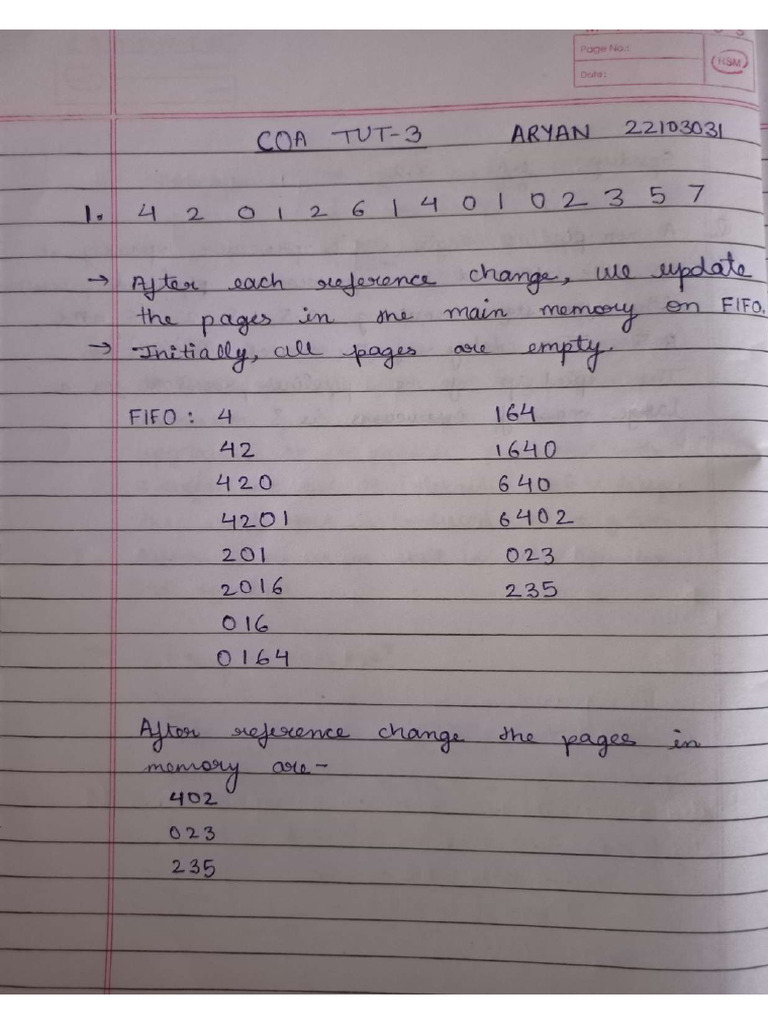 Page No.:
Date:
COA TUT-3 ARYAN 22103031
1. 4 2 0 1 2 6 1 4 0 1 0 2 3 5 7
→ After each reference change, we update
the pages in the main memory on FIFO.
→ Initially, all pages are empty.
FIFO : 4 164
42 1640
420 640
4201 6402
201 023
2016 235
016
0164
After reference change the pages in
memory are-
402
023
235